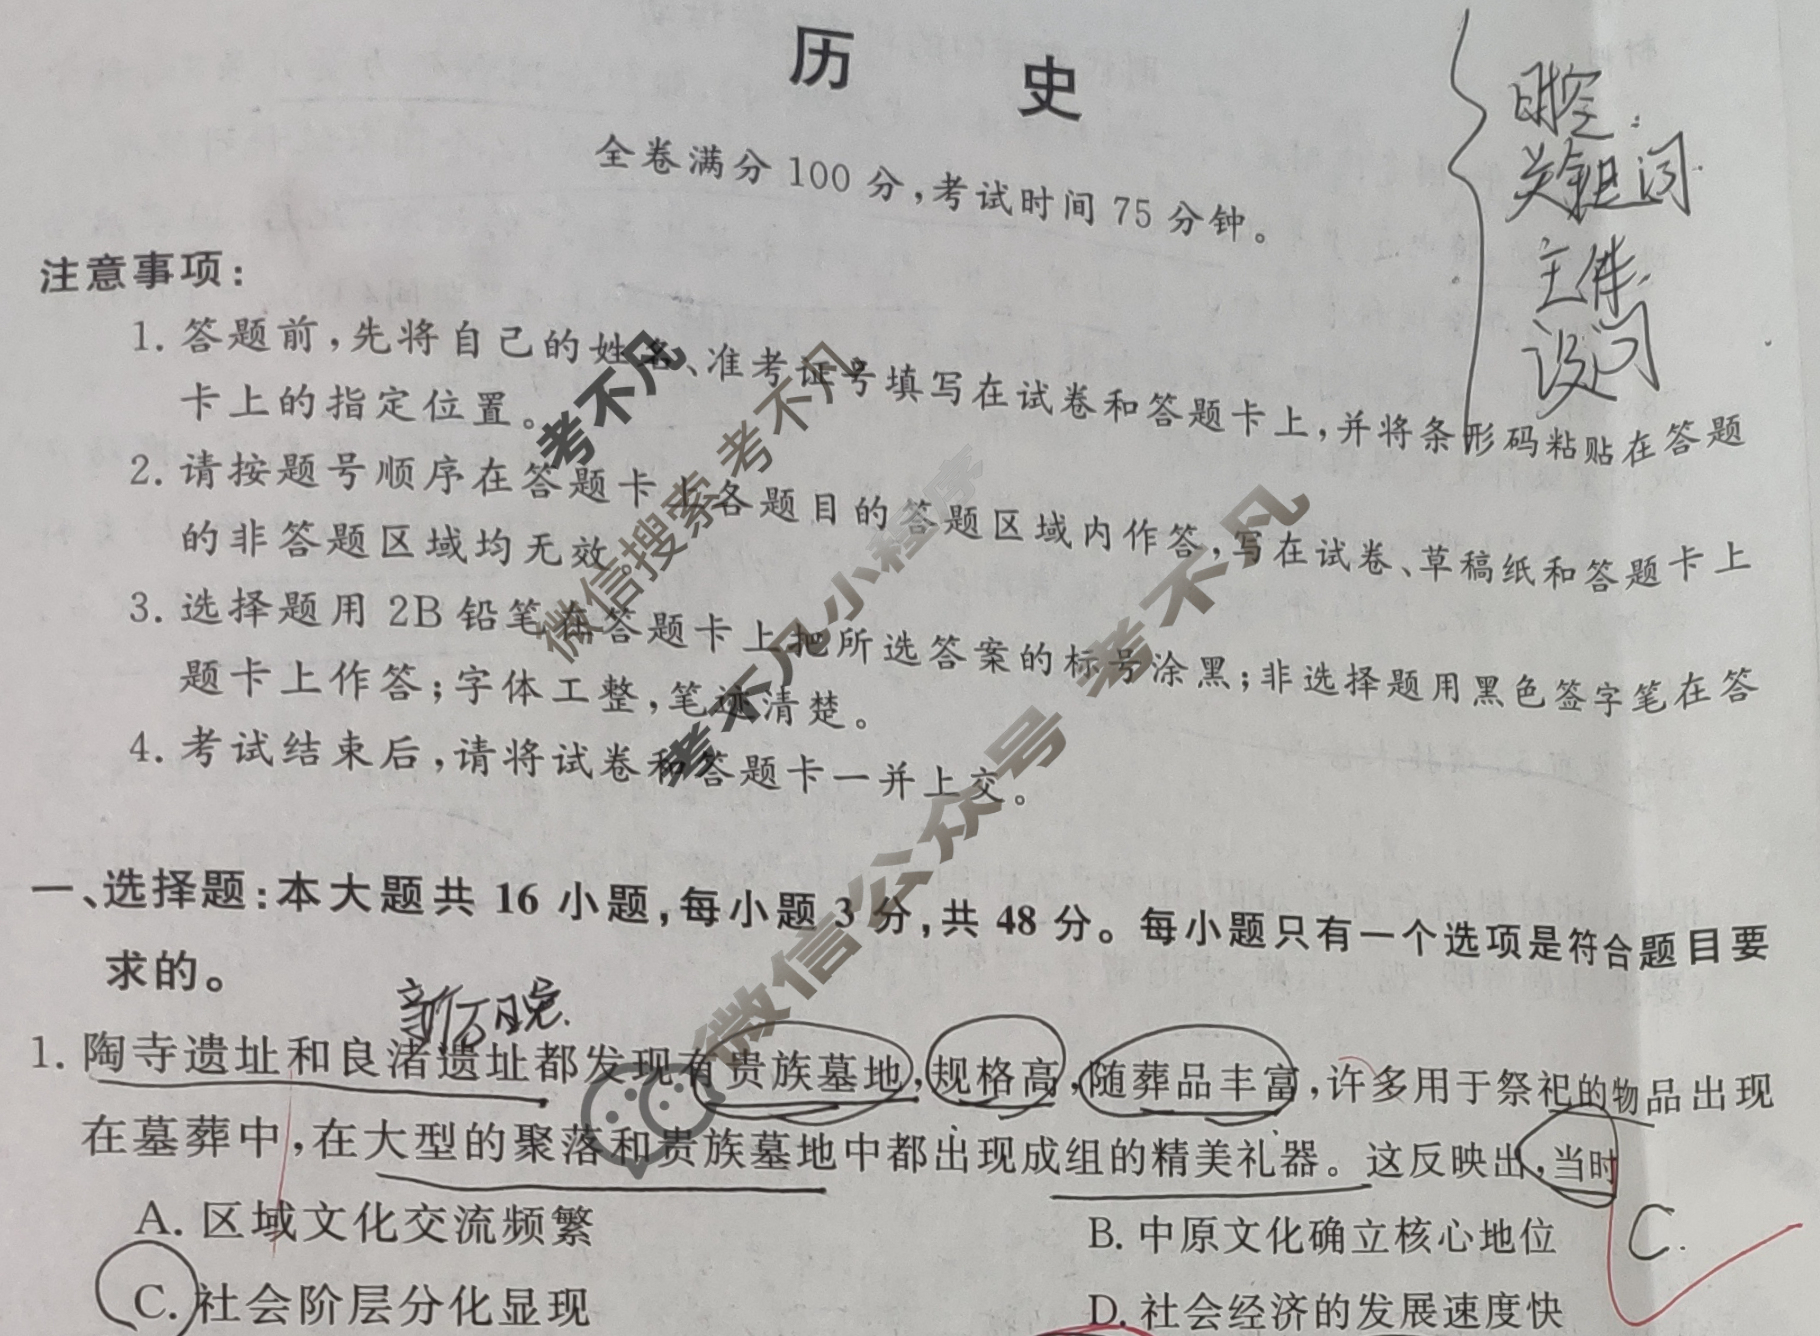 历 史
全卷满分 100 分,考试时间 75 分钟。
时空.
关键词.
主体.
设问
注意事项:
1. 答题前,先将自己的姓名、准考证号填写在试卷和答题卡上,并将条形码粘贴在答题
卡上的指定位置。
2. 请按题号顺序在答题卡上各题目的答题区域内作答,写在试卷、草稿纸和答题卡上
的非答题区域均无效。
3. 选择题用 2B 铅笔在答题卡上把所选答案的标号涂黑;非选择题用黑色签字笔在答
题卡上作答;字体工整,笔迹清楚。
4. 考试结束后,请将试卷和答题卡一并上交。
考不凡
微信搜索 考不凡
考不凡小程序
微信公众号 考不凡
一、选择题:本大题共 16 小题,每小题 3 分,共 48 分。每小题只有一个选项是符合题目要
求的。
新石晚.
1. 陶寺遗址和良渚遗址都发现有贵族墓地,规格高,随葬品丰富,许多用于祭祀的物品出现
在墓葬中,在大型的聚落和贵族墓地中都出现成组的精美礼器。这反映出,当时
A. 区域文化交流频繁
B. 中原文化确立核心地位
C.
C. 社会阶层分化显现
D. 社会经济的发展速度快